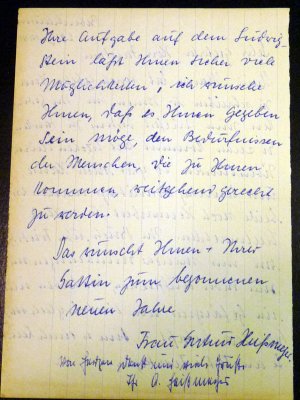 Ihre Aufgabe auf dem Ludwig-
stein läßt Ihnen sicher viele
Möglichkeiten; ich wünsche
Ihnen, daß es Ihnen gegeben
sein möge, den Bedürfnissen
der Menschen, die zu Ihnen
kommen, weitgehend gerecht
zu werden.
Das wünscht Ihnen + Ihrer
Gattin zum begonnenen
neuen Jahre
Frau Gertrud
von Herzen und viele Grüße
Ihr A.